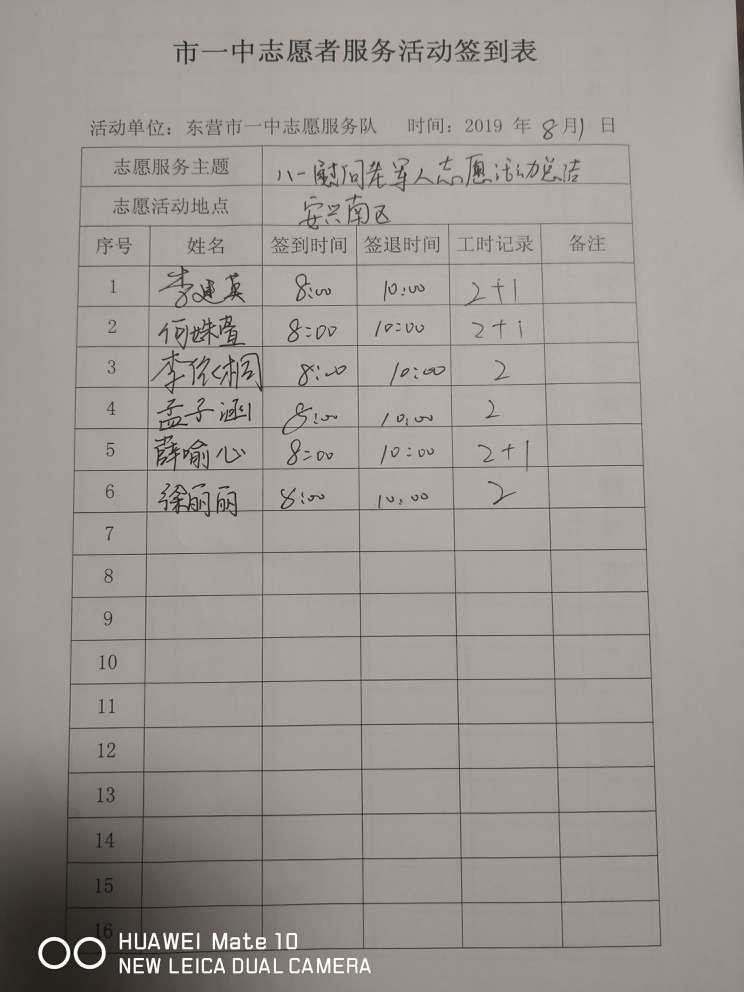 市一中志愿者服务活动签到表
活动单位：东营市一中志愿服务队 时间：2019 年 8月1 日
志愿服务主题 八一慰问老军人志愿活动总结
志愿活动地点 安兴南区
序号 姓名 签到时间 签退时间 工时记录 备注
1 李建英 8:00 10:00 2+1
2 何姝萱 8:00 10:00 2+1
3 李依桐 8:00 10:00 2
4 孟子涵 8:00 10:00 2
5 薛喻心 8:00 10:00 2+1
6 徐丽丽 8:00 10:00 2
7
8
9
10
11
12
13
14
15
16
HUAWEI Mate 10
NEW LEICA DUAL CAMERA